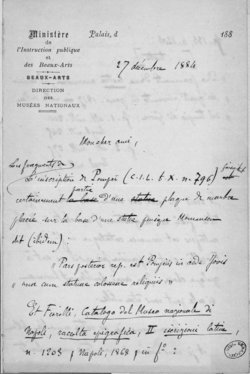 Ministère
de
l'Instruction publique
et
des Beaux-Arts
BEAUX-ARTS
DIRECTION
DES
MUSÉES NATIONAUX
Palais, d 188
27 décembre 1884
Mon cher ami,
Les fragments de
L'inscription de Pompéi (C.I.L. t. X. n. 796)
partie
certainement d'une plaque de marbre
placée sur la base d'une statue
dit (ibidem) :
"Pars posterior rep. est Pompeiis in aede Jovis
una cum statuae colosseae reliquiis"
Cf. Fiorelli, Catalogo del Museo nazionale di
Napoli, raccolta epigrafica, II iscrizioni latine,
n. 1208 (Napoli, 1868, in fº :